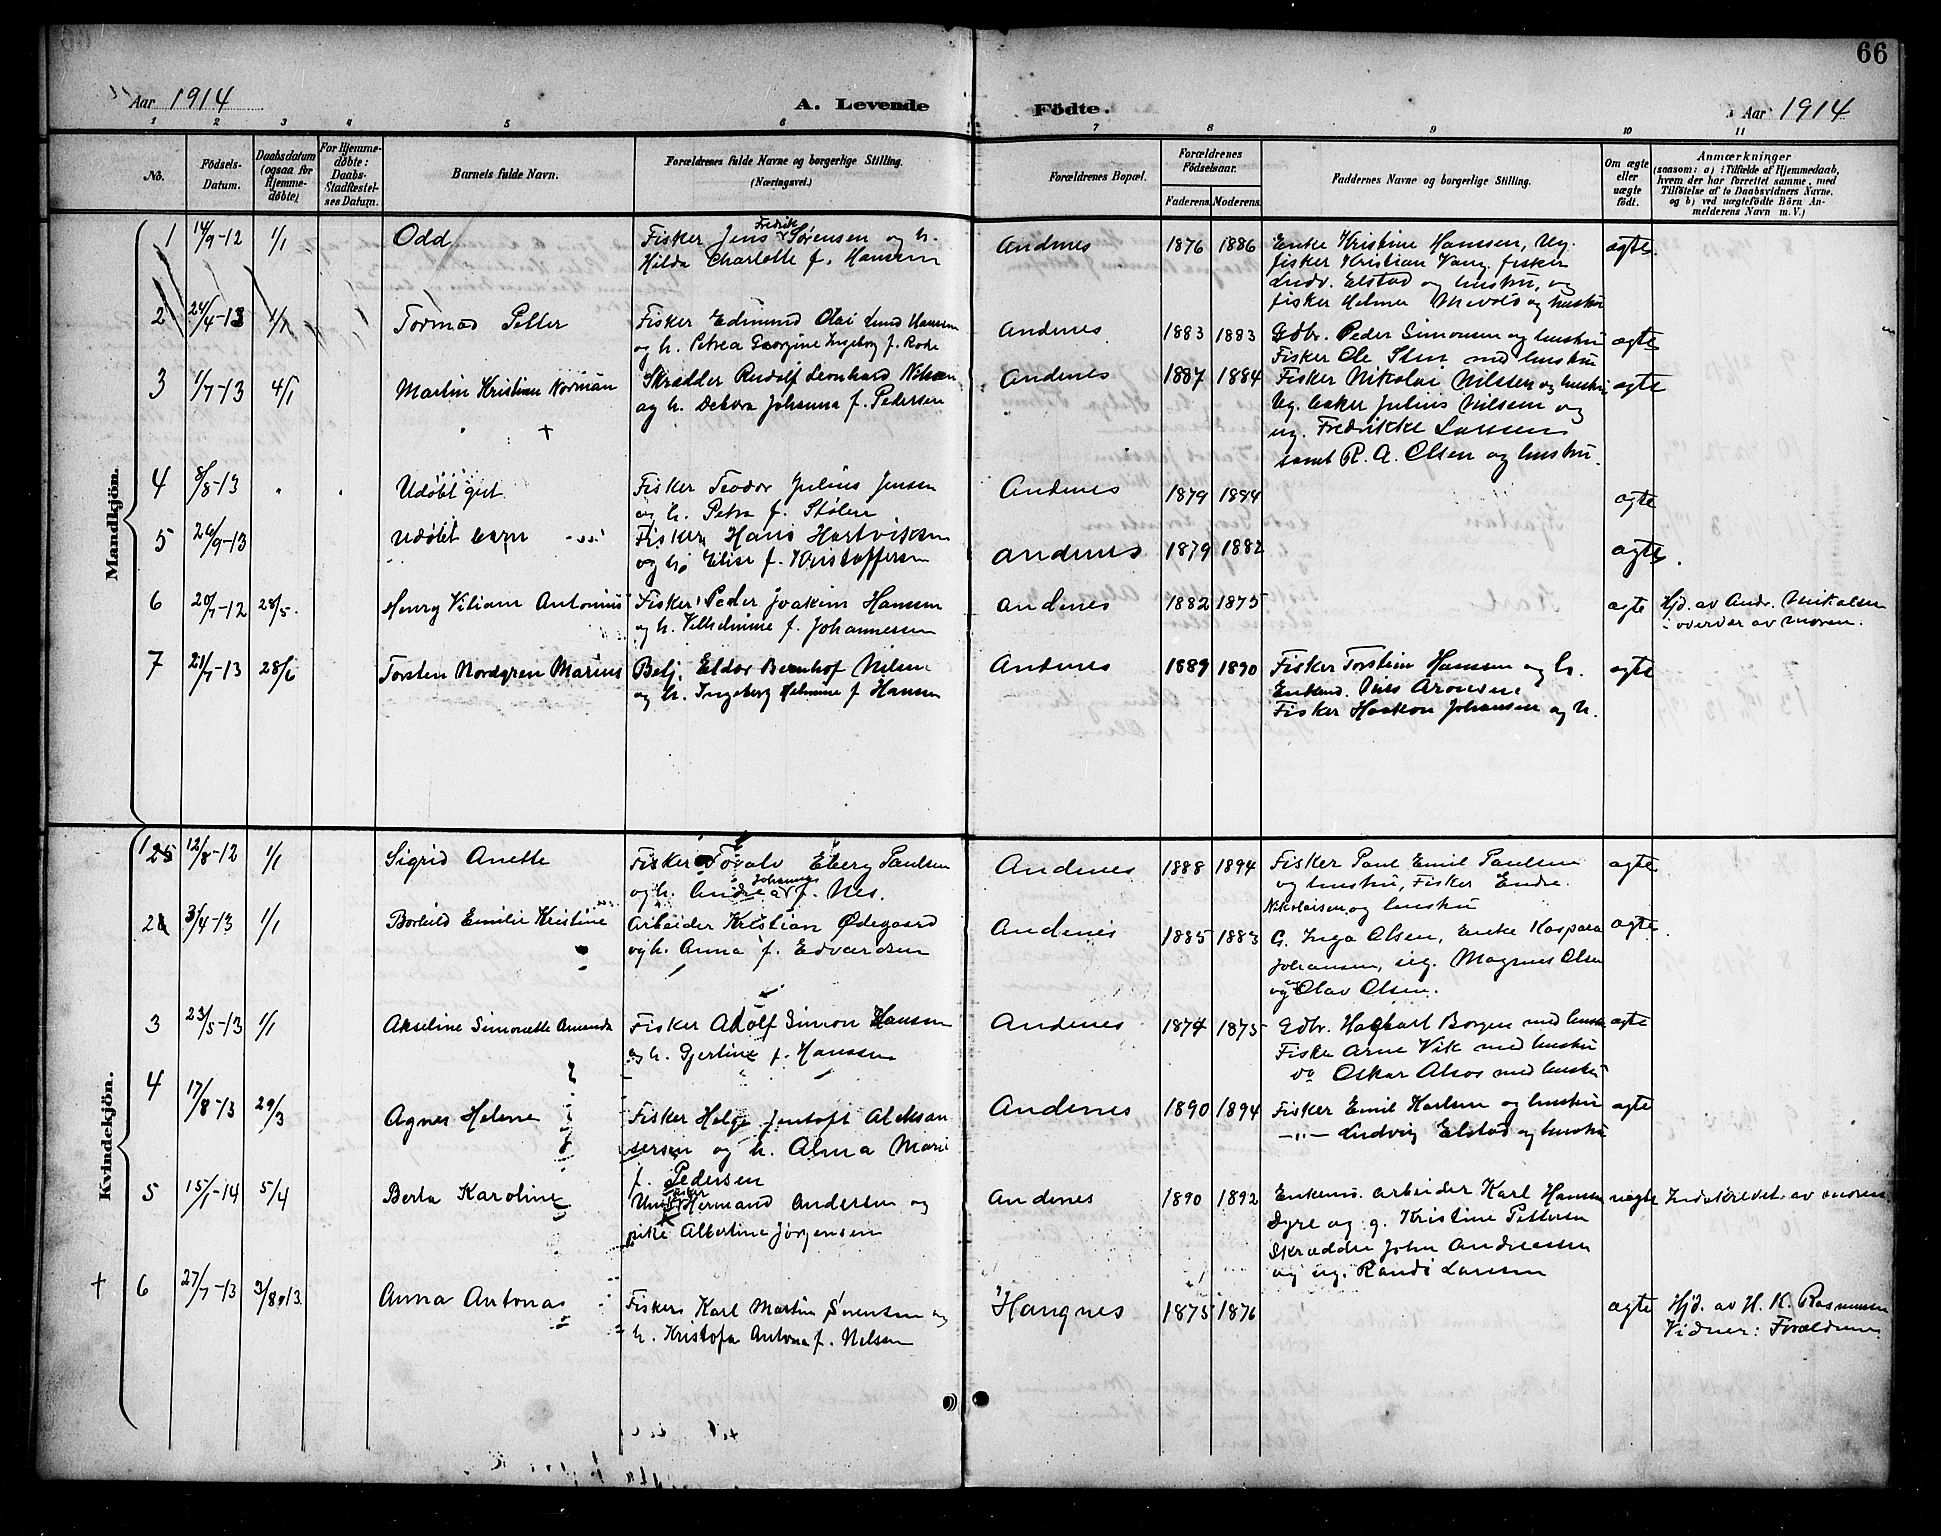 66
Aar 1914
A. Levende Födte.
Aar 1914
1 2 3 4 5 6 7 8 9 10 11
No.
Födsels-Datum.
Daabsdatum (ogsaa for Hjemme-döbte)
For Hjemme-döbte: Daabs-Stadfæstel-ses Datum.
Barnets fulde Navn.
Forældrenes fulde Navne og borgerlige Stilling. (Næringsvei.)
Forældrenes Bopæl.
Forældrenes Födselsaar.
Faderens. Moderens.
Faddernes Navne og borgerlige Stilling.
Om ægte eller uægte födt.
Anmærkninger
(saasom: a) i Tilfælde af Hjemmedaab,
hvem der har forrettet samme, med
Tilföielse af to Daabsvidners Navne,
og b) ved uægtefödte Börn An-
melderens Navn m. V.)
Mandkjön.
1 14/9-12 1/1 Odd
Fisker Jens Fredrik Sørensen og h.
Hilda Charlotte f. Hansen
Andenes 1876 1886
Enke Kristine Hansen, Ug.
fisker Kristian Vang, fisker
Ludv. Elstad og hustru, og
fisker Helmer og hustru
ægte
2 24/4-13 1/1 Tormod Petter
Fisker Edmund Olai Lund Hansen
og h. Petrea Georgine Ingeborg f. Rode
Andenes 1883 1883
Gdbr. Peder Simonsen og hustru
Fisker Ole Sten med hustru
ægte
3 1/7-13 4/1 Martin Kristian Norman
+
Skrædder Rudolf Leonhard Nilsen
og h. Debora Johanna f. Pedersen
Andenes 1887 1884
Fisker Nikolai Nilssen og hustru
Ug. baker Julius Nilsen og
ug. Fredrikke Larssen
samt R. A. Olsen og hustru.
ægte
4 8/8-13 Udöbt gut
Fisker Teodor Julius Jensen
og h. Petra f. Stølen
Andenes 1879 1884 ægte
5 26/9-13 Udöbt barn
Fisker Hans Hartviksen
og h. Elise f. Kristoffersen
Andenes 1879 1882 ægte
6 20/7-12 28/5 Henry Viliam Antonius
Fisker Peder Joakim Hansen
og h. Vilhelmine f. Johannessen
Andenes 1882 1875 ægte
Hjd. av Andr. Mikalsen
i overvær av moren.
7 21/7-13 28/6 Torsten Nordgren Marius
Betj. Eldor Bernhof Nilsen
og h. Ingeborg Helmine f. Hansen
Andenes 1889 1890
Fisker Torstein Hanssen og h.
Enkem. Nils Aronsen,
Fisker Haakon Johansen og h.
ægte
Kvindekjön.
1 12/8-12 1/1 Sigrid Anette
Fisker Toralv Eberg Paulsen
og h. Andrea Johannes f. Nes.
Andenes 1888 1894
Fisker Paul Emil Paulsen
og hustru, Fisker Endre
Nikolaisen og hustru
ægte
2 3/4-13 1/1 Borhild Emilie Kristine
Arbeider Kristian Ødegaard
og h. Anna f. Edvardsen
Andenes 1885 1883
G. Inga Olsen, Enke Kaspara
Johansen, ug. Magnus Olsen
og Olav Olsen.
ægte
3 23/5-13 1/1 Akseline Simonette Amanda
Fisker Adolf Simon Hansen
og h. Gjertine f. Hanssen
Andenes 1874 1875
Gdbr. Hagbart Borgen med hustru
Fisker Arne Vik med hustru
do Oskar Alsos med hustru
ægte
4 17/8-13 29/3 Agnes Helene
Fisker Helge Jentoft Aleksan-
dersen og h. Alma Marie
f. Pedersen
Andenes 1890 1894
Fisker Emil Karlsen og hustru
—"— Ludvig Elstad og hustru
ægte
5 15/1-14 5/4 Berta Karoline
Ungk. fisker Hermand Andersen og
pike Albertine Jörgensen
Andenes 1890 1892
Enkem. arbeider Karl Hansen
Dyre og g. Kristine Pettersen
Skrædder John Andreassen
og ug. Randi Larssen
uægte Indskrevet av moren
+ 6 27/7-13 3/8 13 Anna Antona
Fisker Karl Martin Sørensen og
h. Kristofa Antona f. Nilsen
Haugnes 1875 1876 ægte
Hjd. av H. K. Rasmussen
Vidner: Forældrene